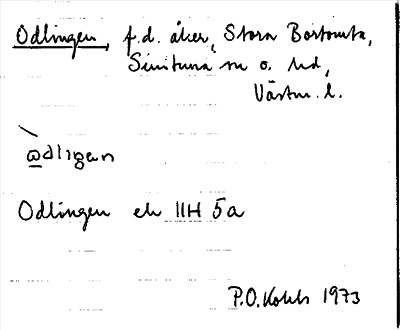 Odlingen, f.d. åker, Stora Bortomta,
Simtuna sn o. hd,
Västm. l.
odligan
Odlingen ek IIH 5a
P.O. 1973